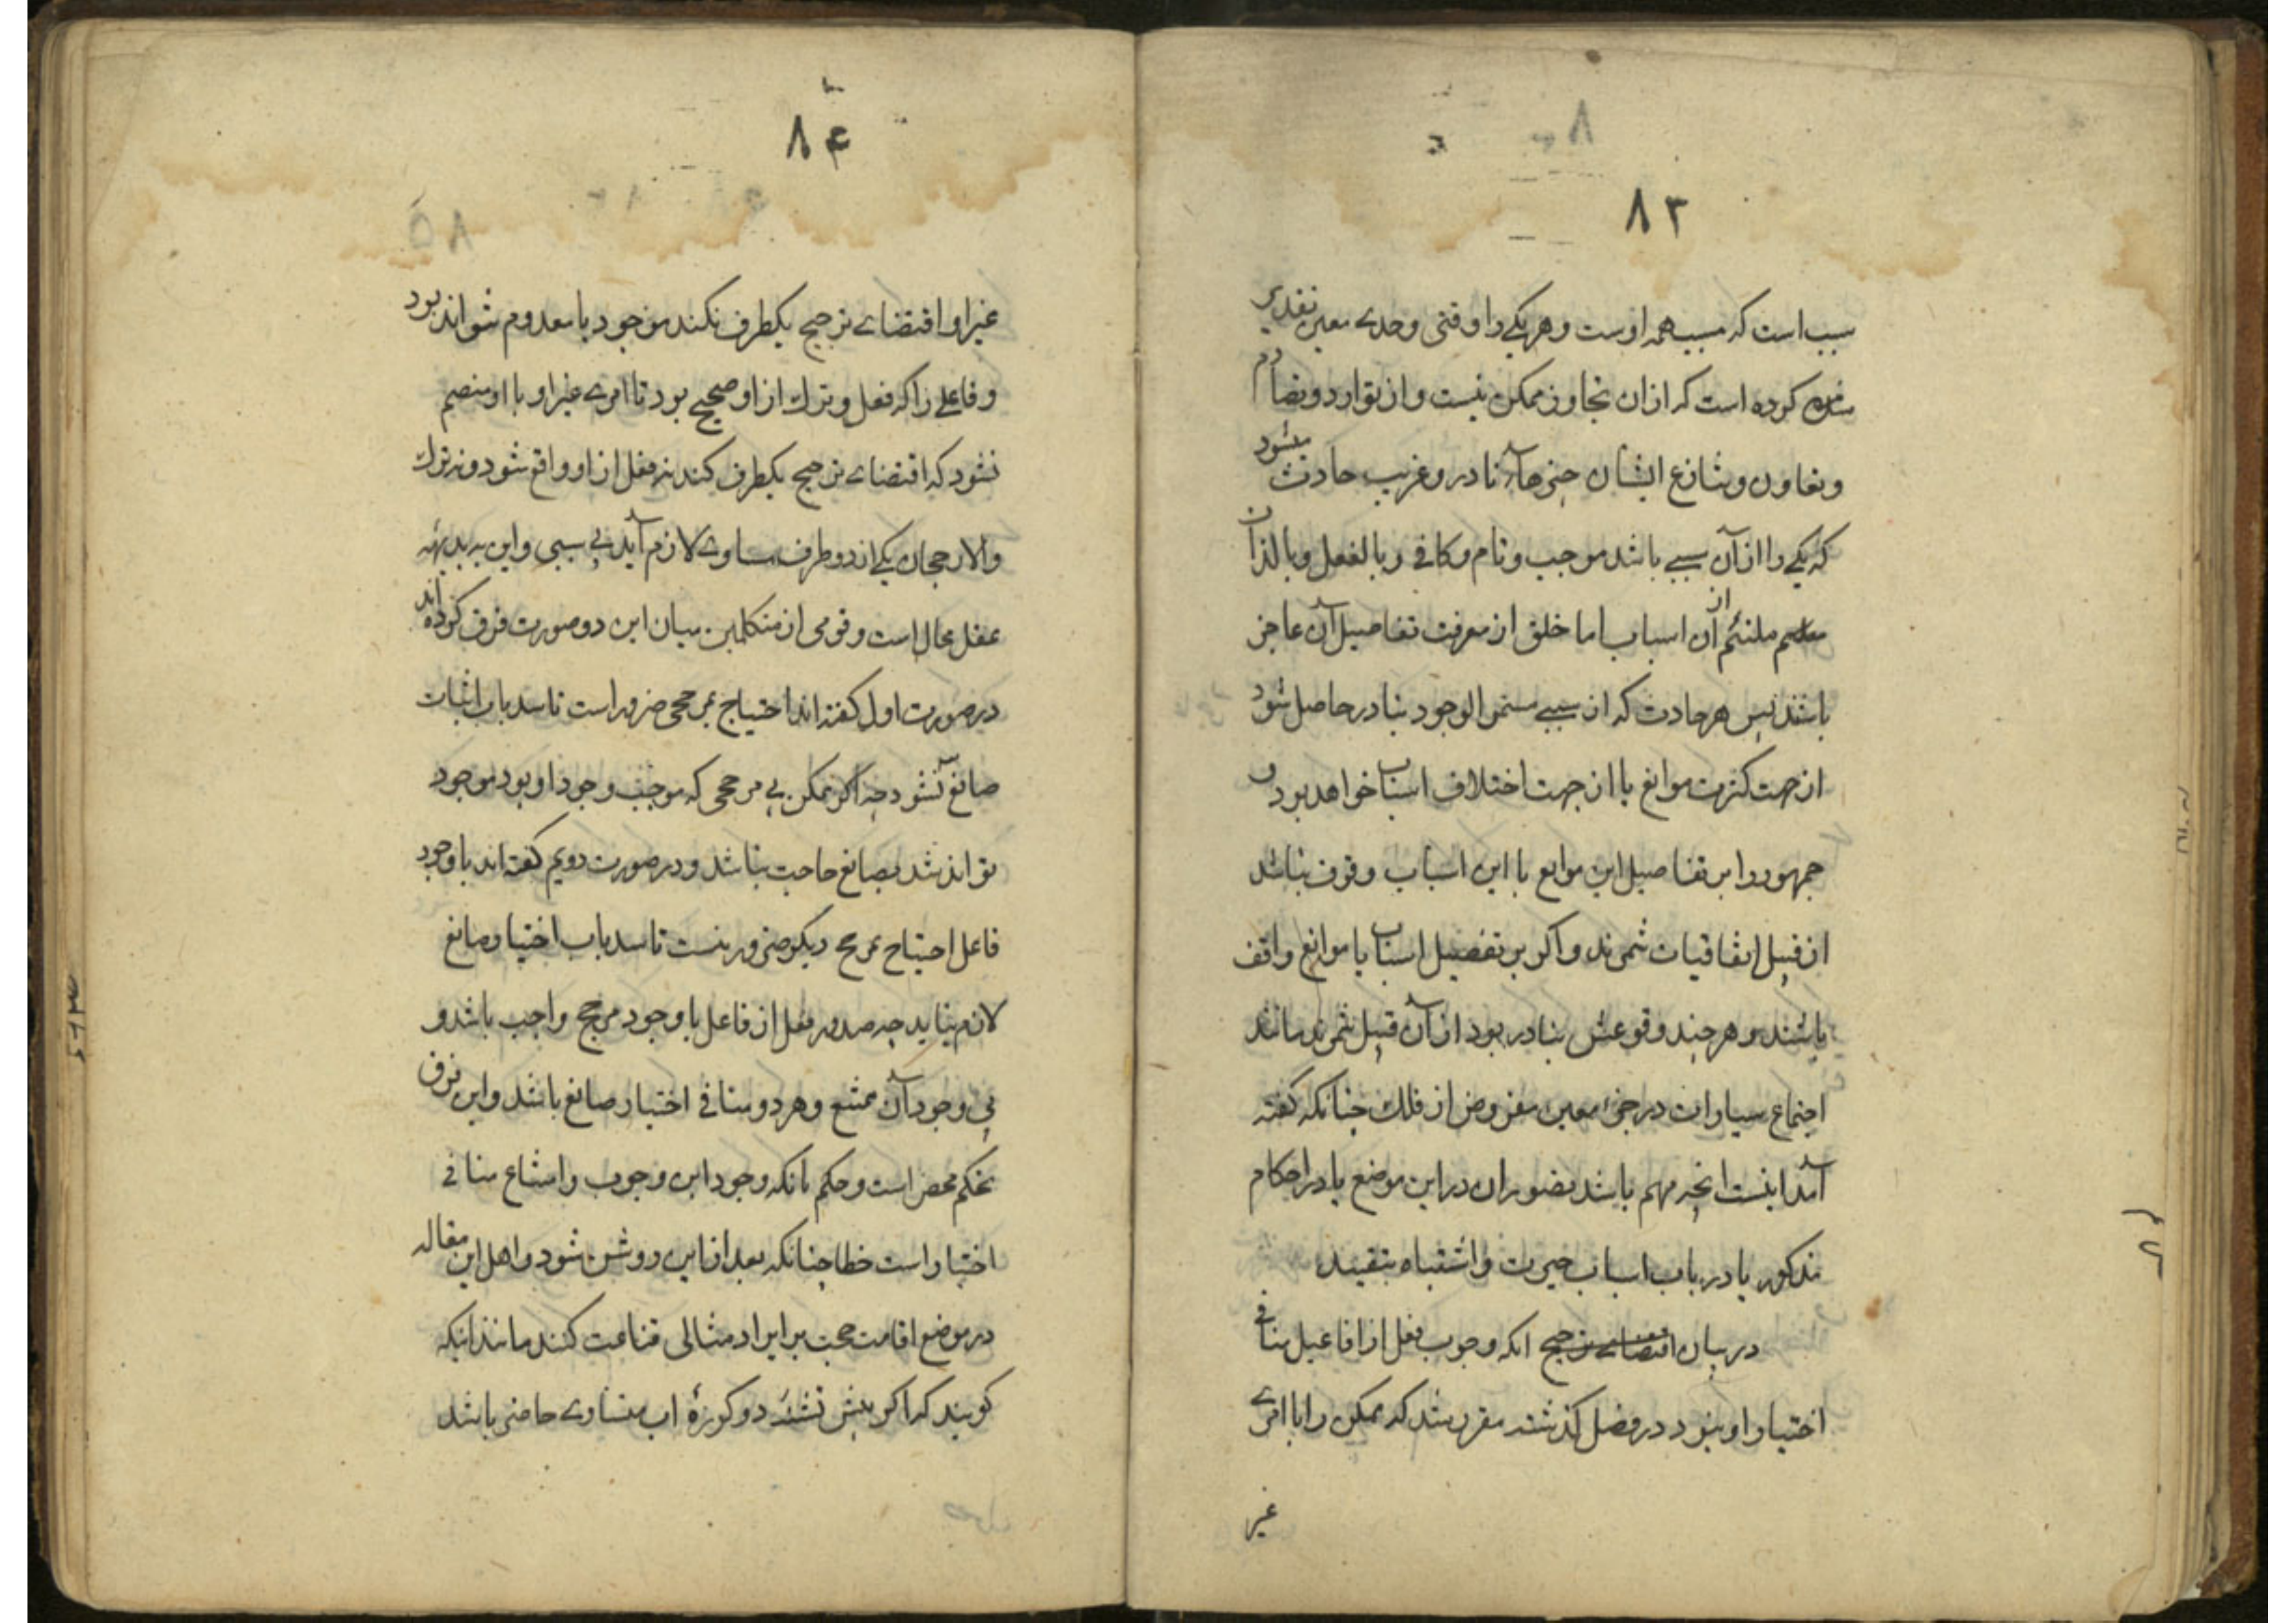 ۸۳
سبب است که مسبب همه اوست و هر یکی را وقتی و حدی معین تقدیر
کرده است که ازان تجاوز ممکن نیست و از توارد و تصادم
و تعاون و تنازع ایشان چیزهاء نادر و غریب حادث میشود
که یکی را از آن سببی باشد موجب و تام و کافی و بالفعل و بالذات
ملتئم از آن اسباب اما خلق از معرفت تفاصیل آن عاجز
باشند پس هر حادث که از سببی مستمر الوجود بنادر حاصل شود
از جهت کثرت موانع یا از جهت اختلاف اسباب خواهد بود و
جمهور را بر تفاصیل این موانع یا این اسباب وقوف نباشد
از قبیل اتفاقیات شمرند و اگر بر تفصیل اسباب یا موانع واقف
باشند و هر چند وقوعش بنادر بود از آن قبیل نشمرند مانند
اجتماع سیارات در جزء معین مفروض از فلک چنانکه گفته
آمد اینست انچه مهم باشد تصور ان در این موضع یا در احکام
مذکور یا در باب اسباب حیرت و اشتباه بتقیید
در بیان اقتضاے ترجیح انکه وجوب فعل از افاعیل منافی
اختیار او نبود در فصل گذشته مقرر شد که ممکن را با امرے
غیر
۸۴
غیر او اقتضاے ترجیح یکطرف نکند موجود یا معدوم نتواند بود
و فاعلے را که فعل و ترک از او صحیح بود تا امرے غیر او با او منضم
نشود که اقتضاے ترجیح یکطرف کند نه فعل از او واقع شود و نه ترک
والا رجحان یکی از دو طرف مساوے لازم آید بی سببی و این به بدیهه
عقل محال است و قومی از متکلمین میان این دو صورت فرق کرده اند
در صورت اول گفته اند احتیاج بمرجحی ضرور است تا سد باب اثبات
صانع نشود چه اگر ممکن بی مرجحی که موجب وجود او بود موجود
تواند شد بصانع حاجت نباشد و در صورت دویم گفته اند با وجود
فاعل احتیاج بمرجح دیگر ضرور نیست تا سد باب اختیار صانع
لازم نیاید چه صدور فعل از فاعل با وجود مرجح واجب باشد و
بی وجود آن ممتنع و هر دو منافی اختیار صانع باشد و این فرق
تحکم محض است و حکم بانکه وجود این وجوب و امتناع منافی
اختیار است خطا چنانکه بعد ازاین روشن شود و اهل این مقاله
در موضع اقامت حجت بر ایراد مثالی قناعت کنند مانند اینکه
گویند که اگر پیش تشنهٔ دو کوزهٔ اب متساوے حاضر باشد